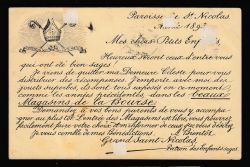 Paroisse de St Nicolas
Année 189
Mes chers Petits
Heureux seront ceux d'entre vous
qui ont été bien sages
Je viens de quitter ma Demeure Céleste pour vous
distribuer des récompenses. J'apporte avec moi des
jouets superbes, ils sont tous exposés en ce moment
comme les années précédentes, dans les Beaux
Magasins de la Bourse
Demandez à vos bons parents de vous y accompa-
gner au plus tôt. L'entrée des Magasins étant libre, vous pourrez
facilement faire votre choix
Je vous comble de mes Bénédictions. A Bientôt
Grand Saint Nicolas
Patron des Enfants sages